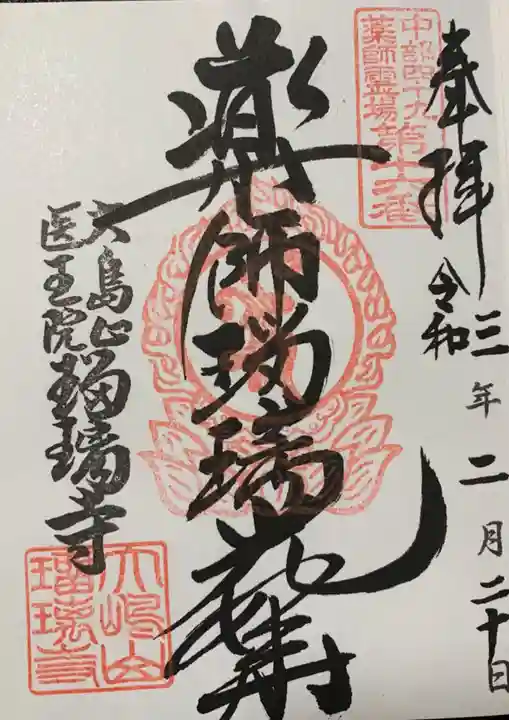 奉拝
令和三年二月二十日
中部四十九
薬師霊場第十六番
薬師瑠璃殿
大島山瑠璃寺
医王院
大嶋山
瑠璃寺